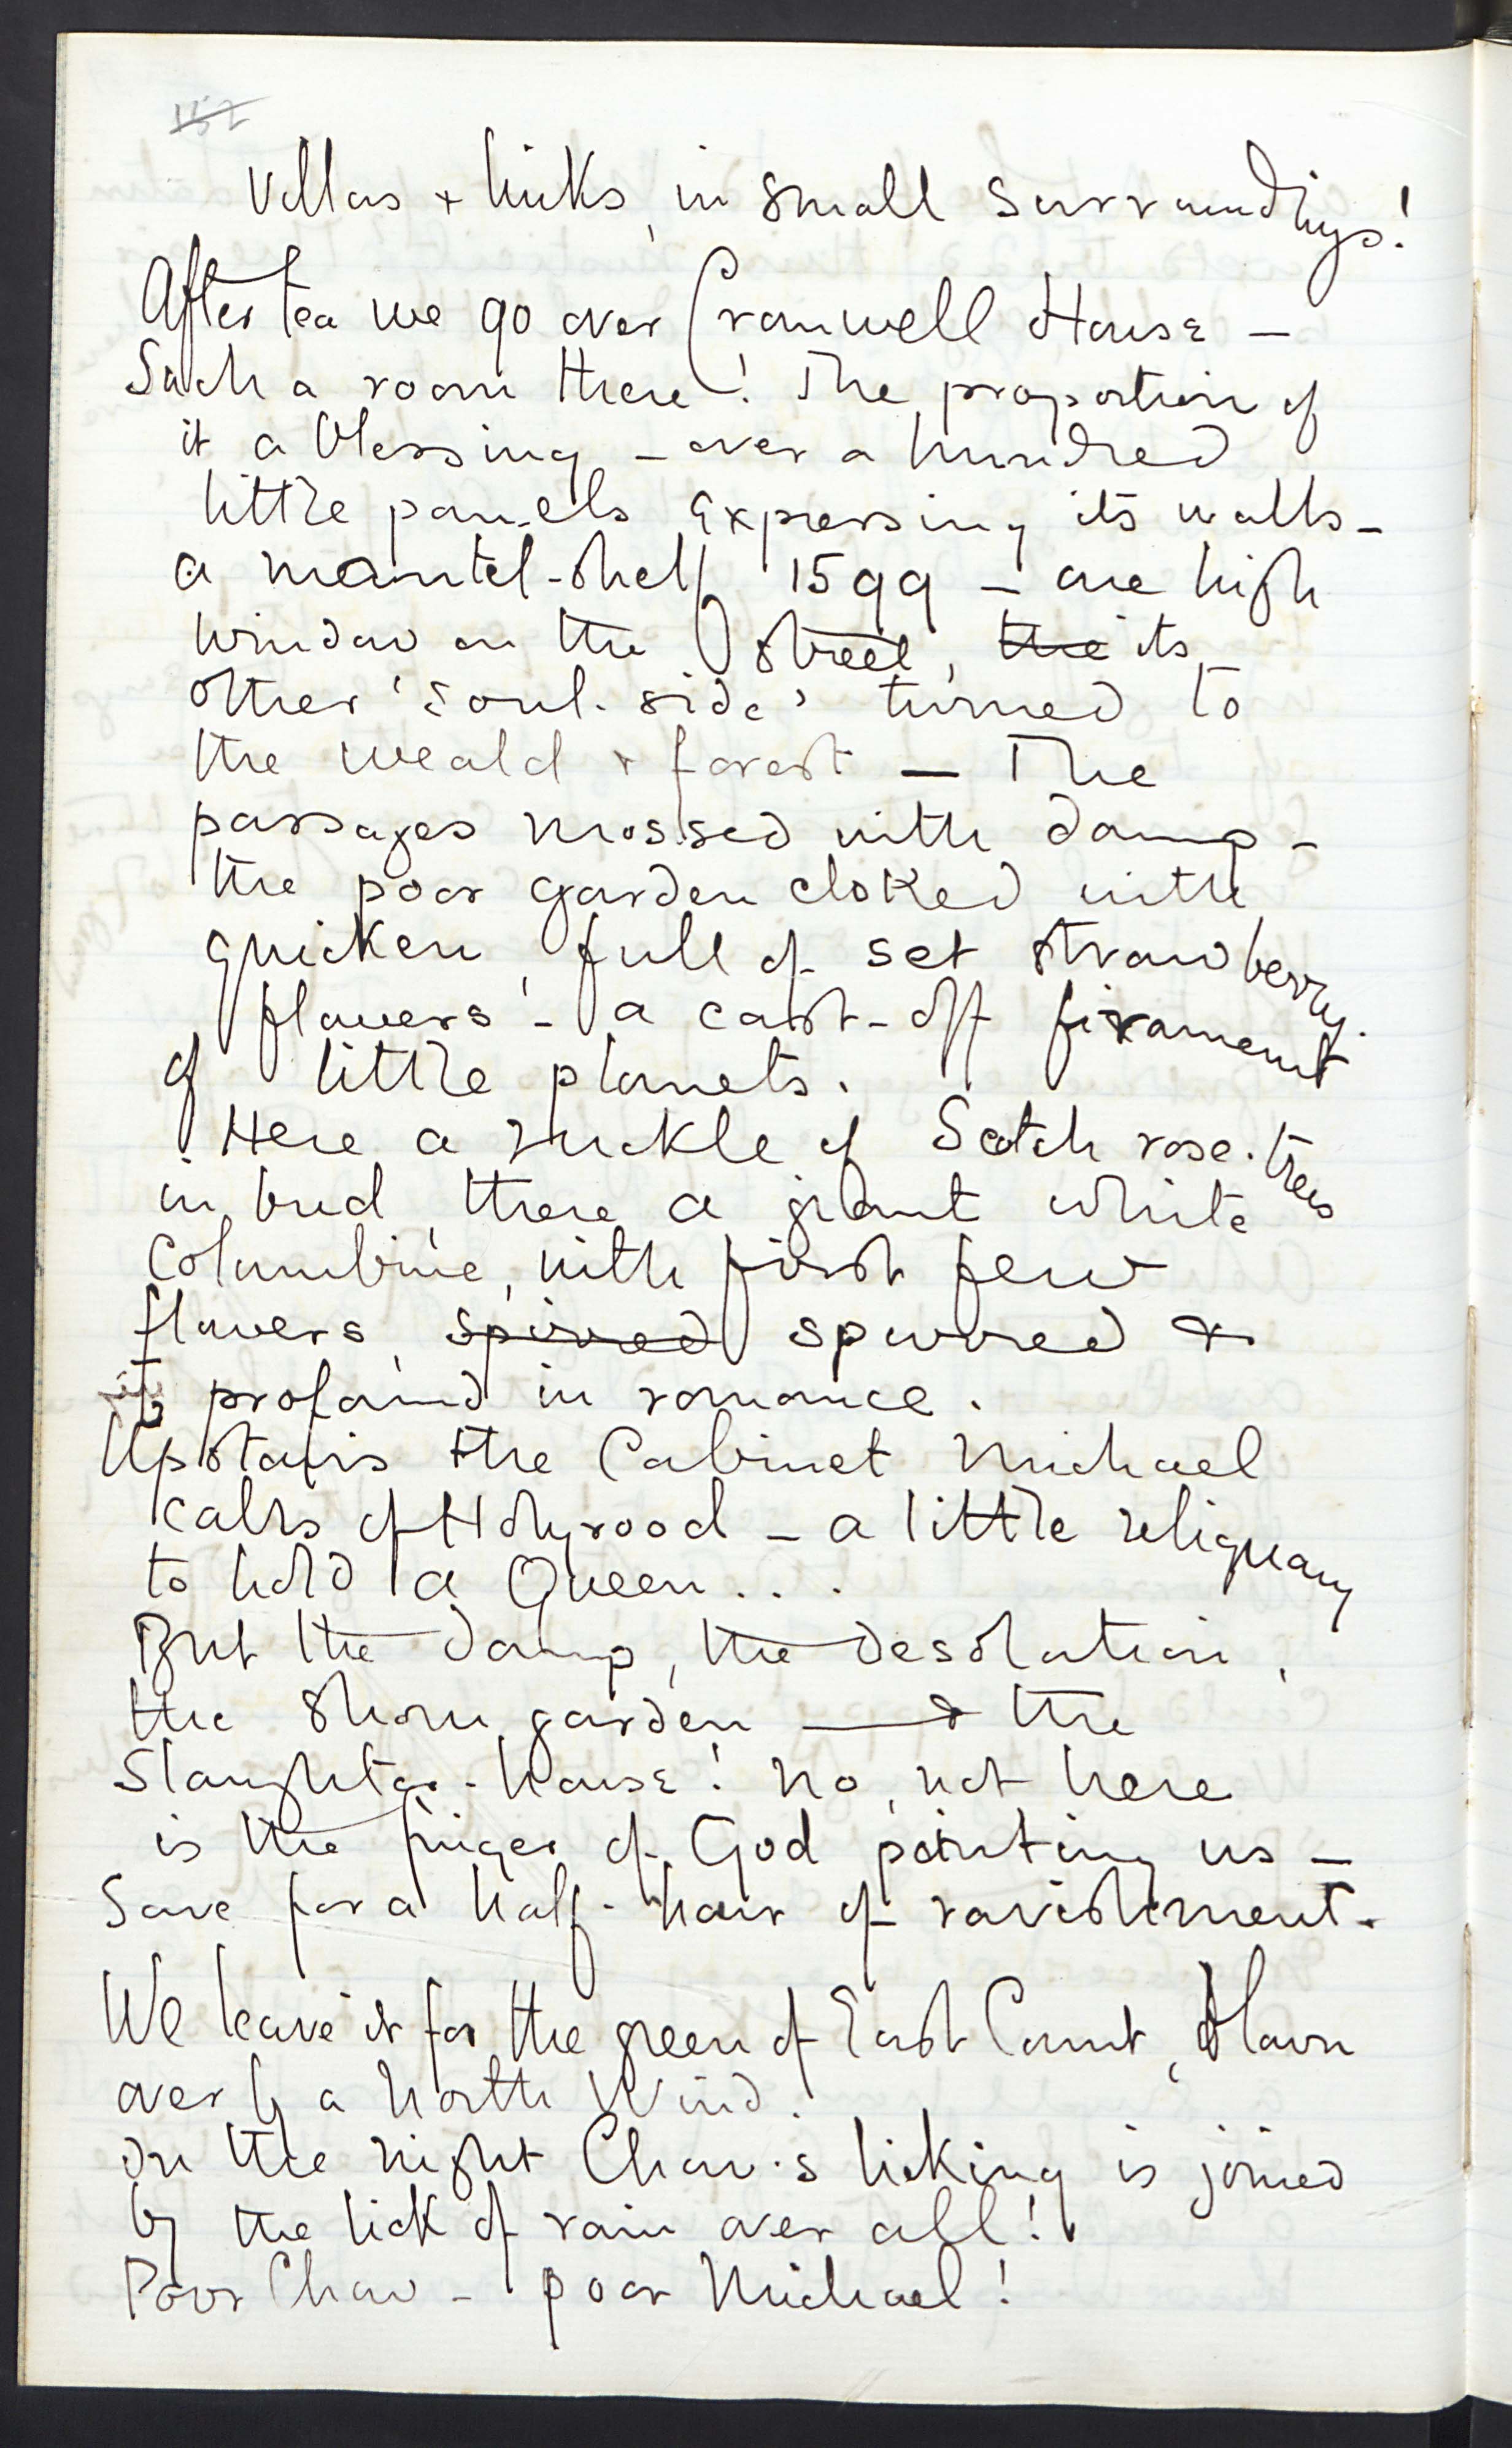 Villas & links, in small surroundings!
After tea we go over Cromwell House –
Such a room there! The proportion of
it a blessing – over a hundred
little panels expressing its walls –
a mantel-shelf 1599 – one high
window on the street, the its
other 'soul-side' turned to
the weald & forest – The
passages mossed with damp –
the poor garden cloked with
quicken, full of set strawberry
flowers – a cast-off firament
of little planets.
Here a ruckle of Scotch rose-trees
in bud, there a giant white
Columbine, with first few
flowers, spired spurred &
profound in romance.
Upstairs the Cabinet Michael
calls of Holyrood – a little reliquary
to hold a Queen...
But the damp, the desolation,
the shorn garden — & the
Slaughter-house! No, not here
is the finger of God pointing us –
Save for a half-hour of ravishment.
We leave it for the green of East Court, blown
over by a North Wind.
In the night Chow's licking is joined
by the lick of rain over all!
Poor Chow – poor Michael!